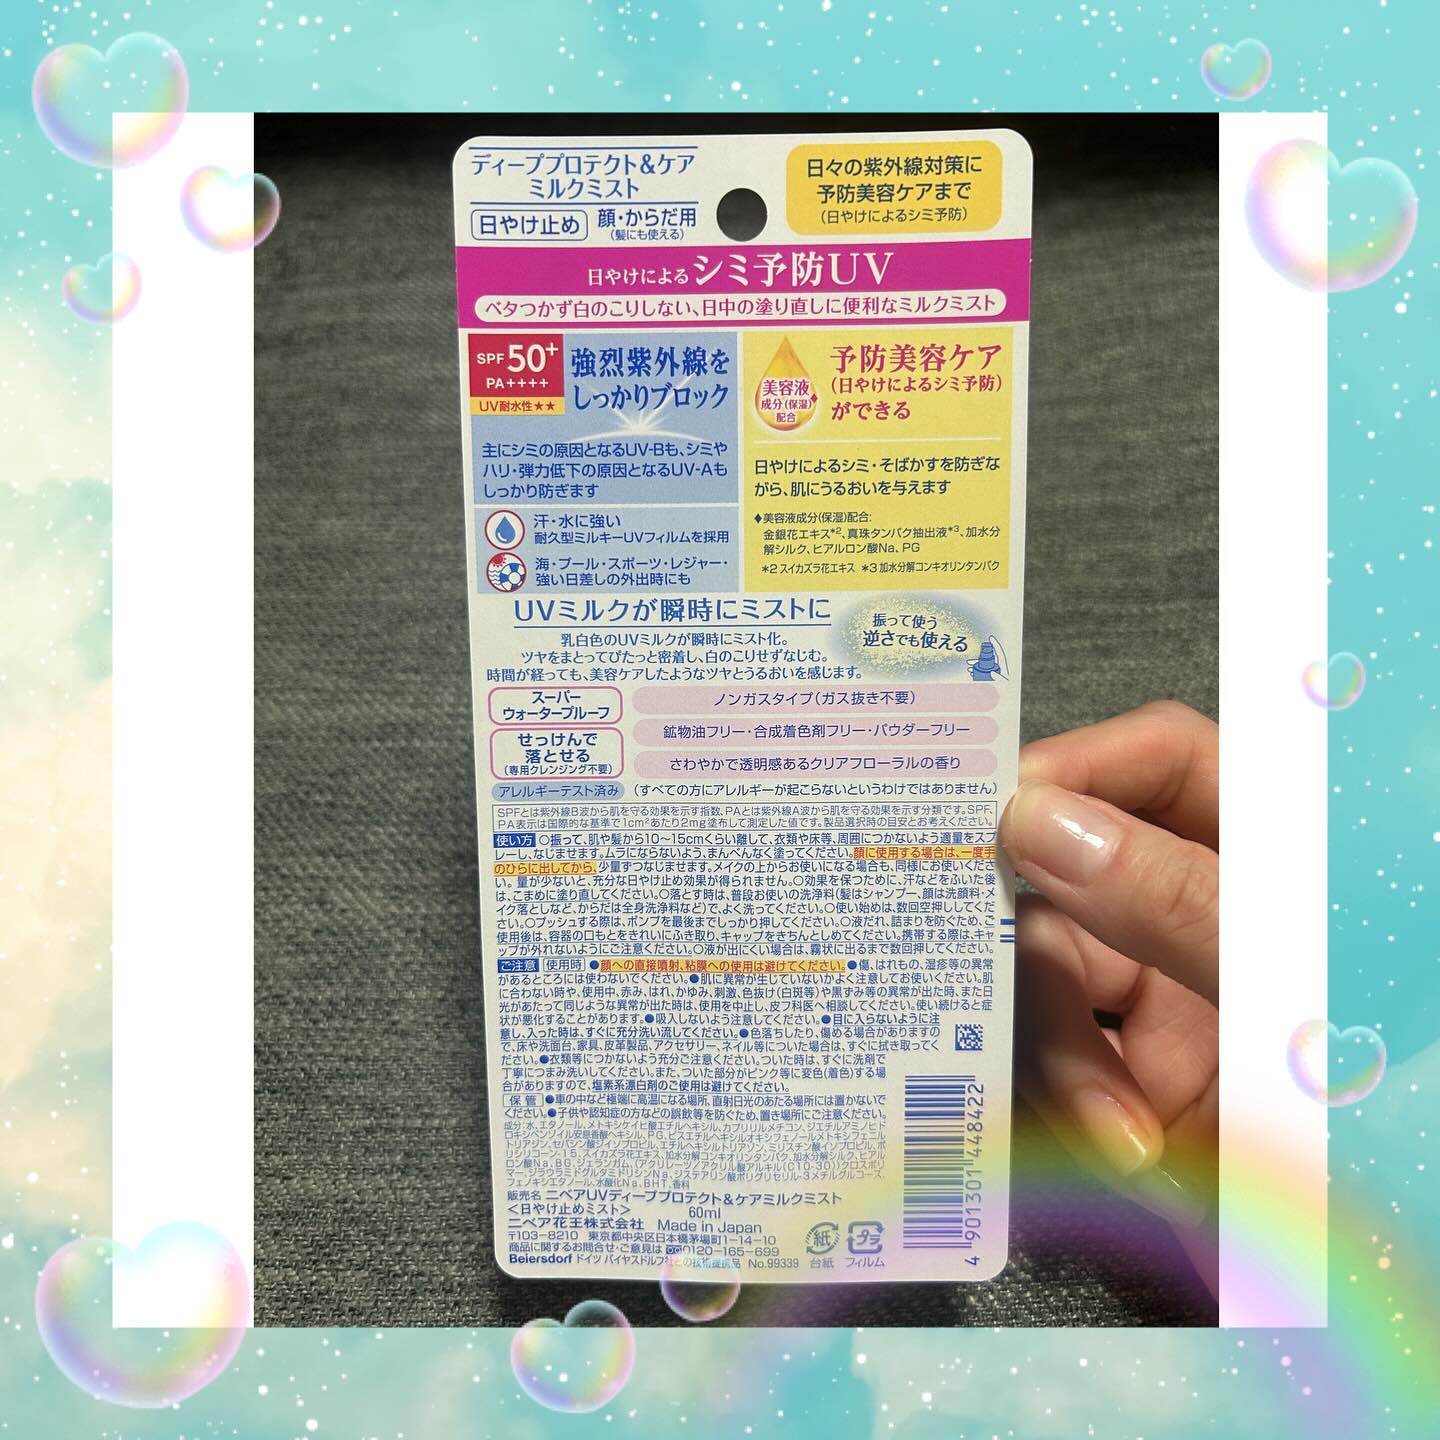 ディーププロテクト&ケア
ミルクミスト
日やけ止め 顔・からだ用
(髪にも使える)
日々の紫外線対策に
予防美容ケアまで
(日やけによるシミ予防)
日やけによるシミ予防UV
ベタつかず白のこりしない、日中の塗り直しに便利なミルクミスト
SPF50+
PA++++
UV耐水性★★
強烈紫外線を
しっかりブロック
主にシミの原因となるUV-Bも、シミや
ハリ・弾力低下の原因となるUV-Aも
しっかり防ぎます
汗・水に強い
耐久型ミルキーUVフィルムを採用
海・プール・スポーツ・レジャー・
強い日差しの外出時にも
美容液
成分(保湿)
配合
予防美容ケア
(日やけによるシミ予防)
ができる
日やけによるシミ・そばかすを防ぎな
がら、肌にうるおいを与えます
♦美容液成分(保湿)配合:
金銀花エキス*2、真珠タンパク抽出液*3、加水分
解シルク、ヒアルロン酸Na、PG
*2 スイカズラ花エキス *3 加水分解コンキオリンタンパク
UVミルクが瞬時にミストに
乳白色のUVミルクが瞬時にミスト化。
ツヤをまとってぴたっと密着し、白のこりせずなじむ。
時間が経っても、美容ケアしたようなツヤとうるおいを感じます。
振って使う
逆さでも使える
スーパー
ウォータープルーフ
せっけんで
落とせる
(専用クレンジング不要)
ノンガスタイプ(ガス抜き不要)
鉱物油フリー・合成着色剤フリー・パウダーフリー
さわやかで透明感あるクリアフローラルの香り
アレルギーテスト済み (すべての方にアレルギーが起こらないというわけではありません)
SPFとは紫外線B波から肌を守る効果を示す指数、PAとは紫外線A波から肌を守る効果を示す分類です。SPF、
PA表示は国際的な基準で1cm²あたり2mg塗布して測定した値です。製品選択時の目安とお考えください。
使い方 ○振って、肌や髪から10〜15cmくらい離して、衣類や床等、周囲につかないよう適量をスプ
レーし、なじませます。ムラにならないよう、まんべんなく塗ってください。顔に使用する場合は、一度手
のひらに出してから、少量ずつなじませます。メイクの上からお使いになる場合も、同様にお使いくださ
い。量が少ないと、充分な日やけ止め効果が得られません。○効果を保つために、汗などをふいた後
は、こまめに塗り直してください。○落とす時は、普段お使いの洗浄料(髪はシャンプー、顔は洗顔料・メ
イク落としなど、からだは全身洗浄料など)で、よく洗ってください。○使い始めは、数回空押ししてくだ
さい。○プッシュする際は、ポンプを最後までしっかり押してください。○液だれ、詰まりを防ぐため、ご
使用後は、容器の口もとをきれいにふき取り、キャップをきちんとしめてください。携帯する際は、キャ
ップが外れないようにご注意ください。○液が出にくい場合は、霧状に出るまで数回押してください。
ご注意 使用時 ●顔への直接噴射、粘膜への使用は避けてください。●傷、はれもの、湿疹等の異常
があるところには使わないでください。●肌に異常が生じていないかよく注意してお使いください。肌
に合わない時や、使用中、赤み、はれ、かゆみ、刺激、色抜け(白斑等)や黒ずみ等の異常が出た時、また日
光があたって同じような異常が出た時は、使用を中止し、皮フ科医へ相談してください。使い続けると症
状が悪化することがあります。●吸入しないよう注意してください。●目に入らないように注
意し、入った時は、すぐに充分洗い流してください。●色落ちしたり、傷める場合がありますの
で、床や洗面台、家具、皮革製品、アクセサリー、ネイル等についた場合は、すぐに拭き取ってく
ださい。●衣類等につかないよう充分ご注意ください。ついた時は、すぐに洗剤で
丁寧につまみ洗いしてください。また、ついた部分がピンク等に変色(着色)する場
合がありますので、塩素系漂白剤のご使用は避けてください。
保管 ●車の中など極端に高温になる場所、直射日光のあたる場所には置かないで
ください。●子供や認知症の方などの誤飲等を防ぐため、置き場所にご注意ください。
成分:水、エタノール、メトキシケイヒ酸エチルヘキシル、カプリリルメチコン、ジエチルアミノヒド
ロキシベンゾイル安息香酸ヘキシル、PG、ビスエチルヘキシルオキシフェノールメトキシフェニル
トリアジン、セバシン酸ジイソプロピル、エチルヘキシルトリアゾン、ミリスチン酸イソプロピル、ポ
リシリコーン-15、スイカズラ花エキス、加水分解コンキオリンタンパク、加水分解シルク、ヒアル
ロン酸Na、BG、ジェランガム、(アクリレーツ/アクリル酸アルキル(C10-30))クロスポリ
マー、ジラウラミドグルタミドリシンNa、ジステアリン酸ポリグリセリル-3メチルグルコース、
フェノキシエタノール、水酸化Na、BHT、香料
販売名 ニベアUVディーププロテクト&ケアミルクミスト
<日やけ止めミスト> 60ml
ニベア花王株式会社 Made in Japan
〒103-8210 東京都中央区日本橋茅場町1-14-10
商品に関するお問合せ・ご意見は 0120-165-699
Beiersdorf ドイツ バイヤスドルフ社との技術提携品 No.99339
紙 台紙
プラ フィルム
4 901301 448422